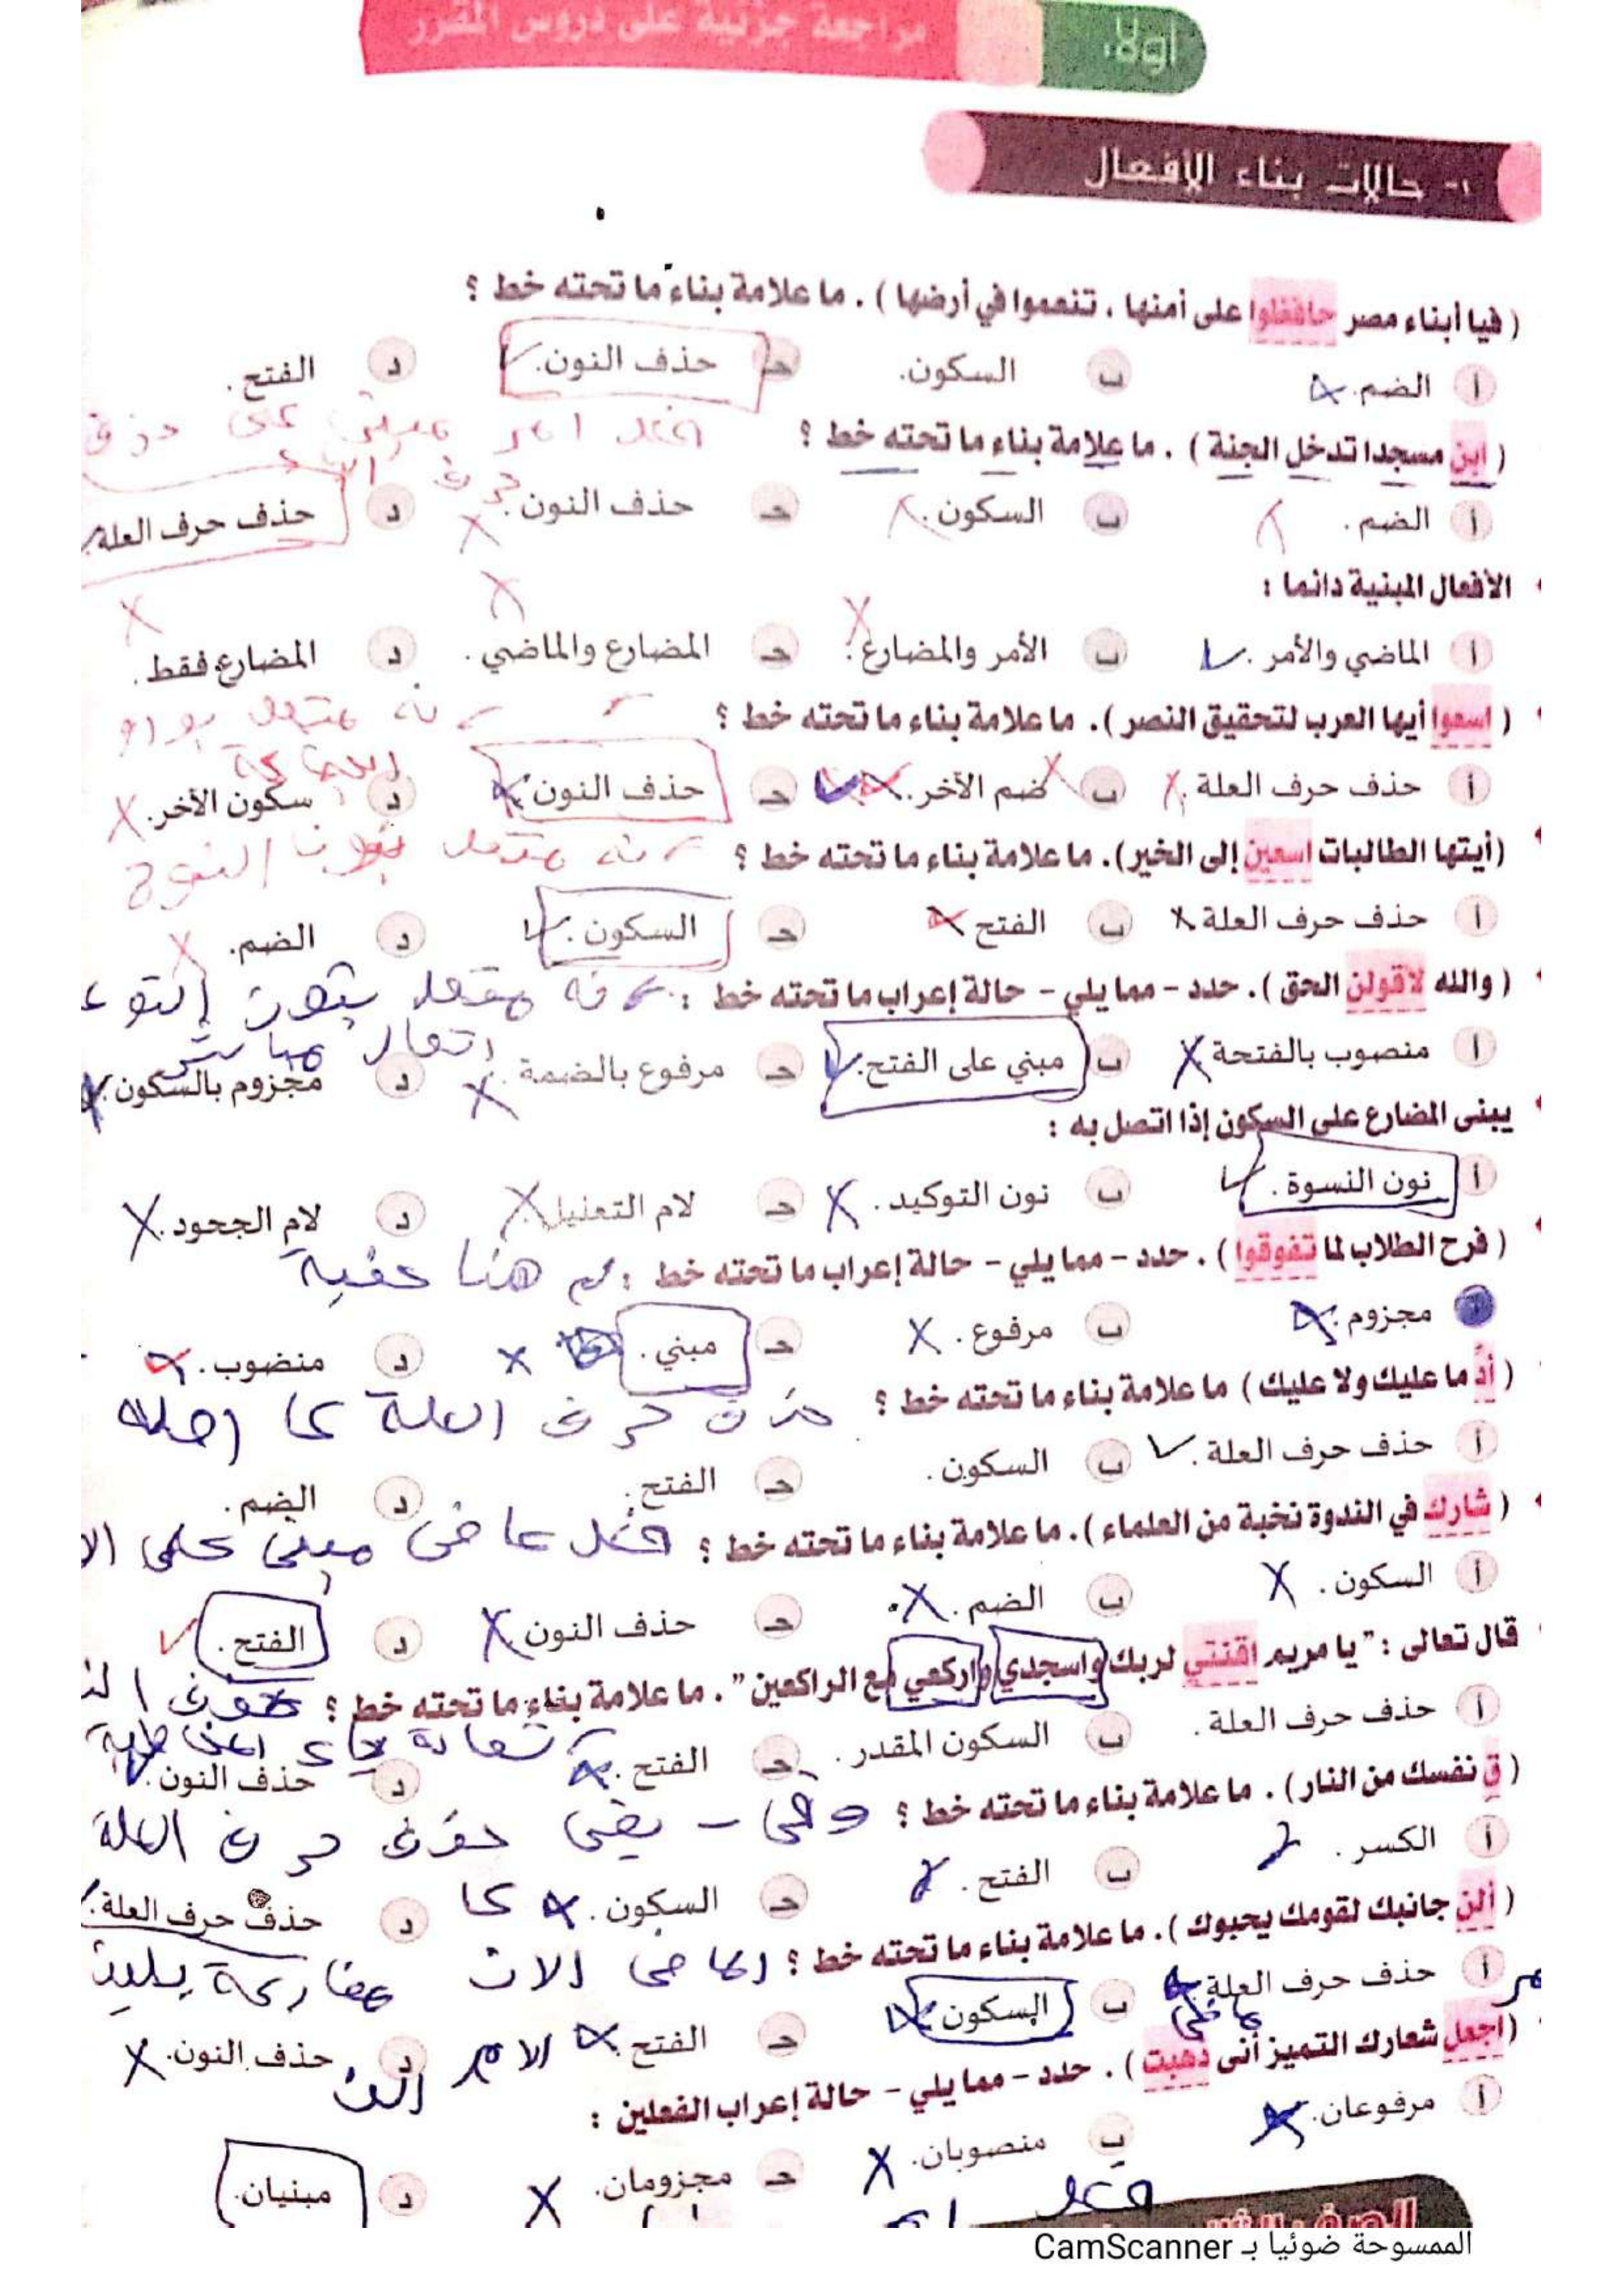 أولا:
مراجعة جزئية على دروس المقرر
١- حالات بناء الأفعال
( فيا أبناء مصر حافظوا على أمنها ، تنعموا في أرضها ) . ما علامة بناء ما تحته خط ؟
أ الضم. ب السكون. حـ حذف النون. د الفتح.
فعل امر مبني على حذف
( ابن مسجدا تدخل الجنة ) . ما علامة بناء ما تحته خط ؟
حرف
أ الضم. ب السكون. حـ حذف النون. د حذف حرف العلة.
الأفعال المبنية دائما :
أ الماضي والأمر. ب الأمر والمضارع. حـ المضارع والماضي. د المضارع فقط.
( اسعوا أيها العرب لتحقيق النصر ). ما علامة بناء ما تحته خط ؟
متصل بواو
الجماعة
أ حذف حرف العلة. ب ضم الآخر. حـ حذف النون. د سكون الآخر.
(أيتها الطالبات اسعين إلى الخير). ما علامة بناء ما تحته خط ؟
متصل بنون
أ حذف حرف العلة ب الفتح حـ السكون. د الضم.
( والله لأقولن الحق ). حدد - مما يلي - حالة إعراب ما تحته خط :
متصل بنون التوك
اتصال مباشر
أ منصوب بالفتحة ب مبني على الفتح. حـ مرفوع بالضمة. د مجزوم بالسكون.
يبنى المضارع على السكون إذا اتصل به :
أ نون النسوة. ب نون التوكيد. حـ لام التعليل د لام الجحود.
( فرح الطلاب لما تفوقوا ) . حدد - مما يلي - حالة إعراب ما تحته خط :
هنا
أ مجزوم. ب مرفوع. حـ مبني. د منصوب.
( أد ما عليك ولا عليك ) ما علامة بناء ما تحته خط ؟
حذف حرف العلة
أ حذف حرف العلة. ب السكون. حـ الفتح. د الضم.
( شارك في الندوة نخبة من العلماء ). ما علامة بناء ما تحته خط ؟
فعل ماضى مبنى على
أ السكون. ب الضم. حـ حذف النون د الفتح.
قال تعالى : " يا مريم اقنتي لربك واسجدي واركعي مع الراكعين " . ما علامة بناء ما تحته خط ؟
أ حذف حرف العلة. ب السكون المقدر. حـ الفتح. د حذف النون.
( ق نفسك من النار ) . ما علامة بناء ما تحته خط ؟
وقى - يقى حذف حرف العلة
أ الكسر. ب الفتح. حـ السكون. د حذف حرف العلة.
( ألن جانبك لقومك يحبوك ). ما علامة بناء ما تحته خط ؟
الماضى الان مضارعة يلين
أ حذف حرف العلة. ب السكون. حـ الفتح. د حذف النون.
الامر الن
ماضى
( اجعل شعارك التميز أنى ذهبت ) . حدد - مما يلي - حالة إعراب الفعلين :
أ مرفوعان. ب منصوبان. حـ مجزومان. د مبنيان.
فعل
الممسوحة ضوئيا بـ CamScanner